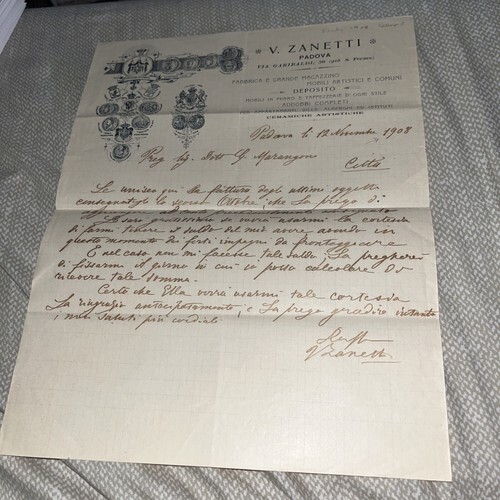 V. ZANETTI
PADOVA
VIA GARIBALDI,
FABBRICA E GRANDE MAGAZZINO
MOBILI ARTISTICI E COMUNI
DEPOSITO
MOBILI IN FERRO E TAPPEZZERIE D'OGNI STILE
ADDOBBI COMPLETI
PER APPARTAMENTI VILLE ALBERGHI ED ISTITUTI
CERAMICHE ARTISTICHE
Padova li 12 Novembre 1908
Preg Sig. Dott G. Marangoni
Città
Le unisco qui la fattura degli ultimi oggetti
consegnatigli lo scorso Ottobre, che La prego di
Avrei di usarmi la cortesia
di farmi tenere il saldo del mio avere avendo in
questo momento dei forti impegni da fronteggiare
E nel caso non mi facesse tale saldo La pregherei
di fissarmi il giorno in cui io posso calcolare di
ricevere tale somma.
Certo che Ella vorrà usarmi tale cortesia
La ringrazio anticipatamente, e La prego gradire
i miei saluti più cordiali
V Zanetti